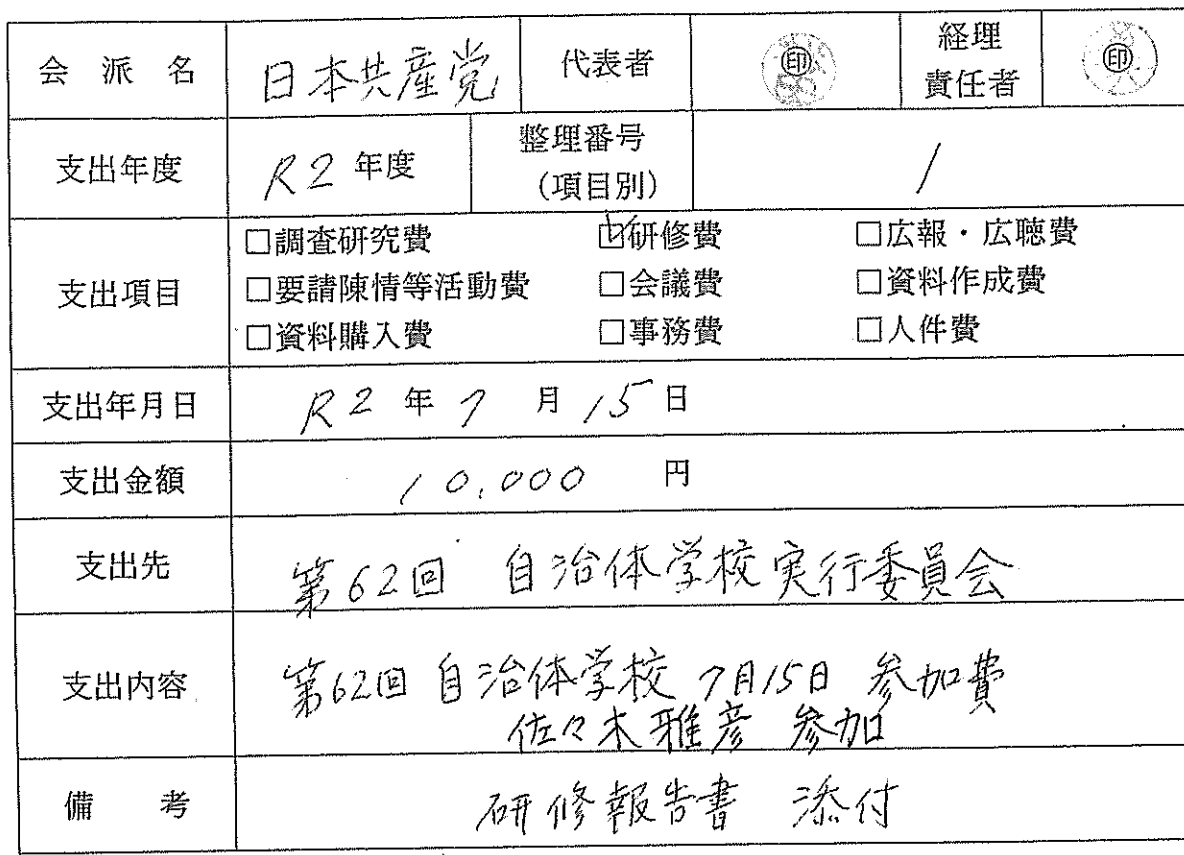 会派名 日本共産党 代表者 ㊞ 経理責任者 ㊞
支出年度 R2年度 整理番号(項目別) 1
支出項目
□調査研究費 ☑研修費 □広報・広聴費
□要請陳情等活動費 □会議費 □資料作成費
□資料購入費 □事務費 □人件費
支出年月日 R2年7月15日
支出金額 10,000円
支出先 第62回 自治体学校実行委員会
支出内容 第62回 自治体学校 7月15日 参加費
佐々木雅彦 参加
備考 研修報告書 添付